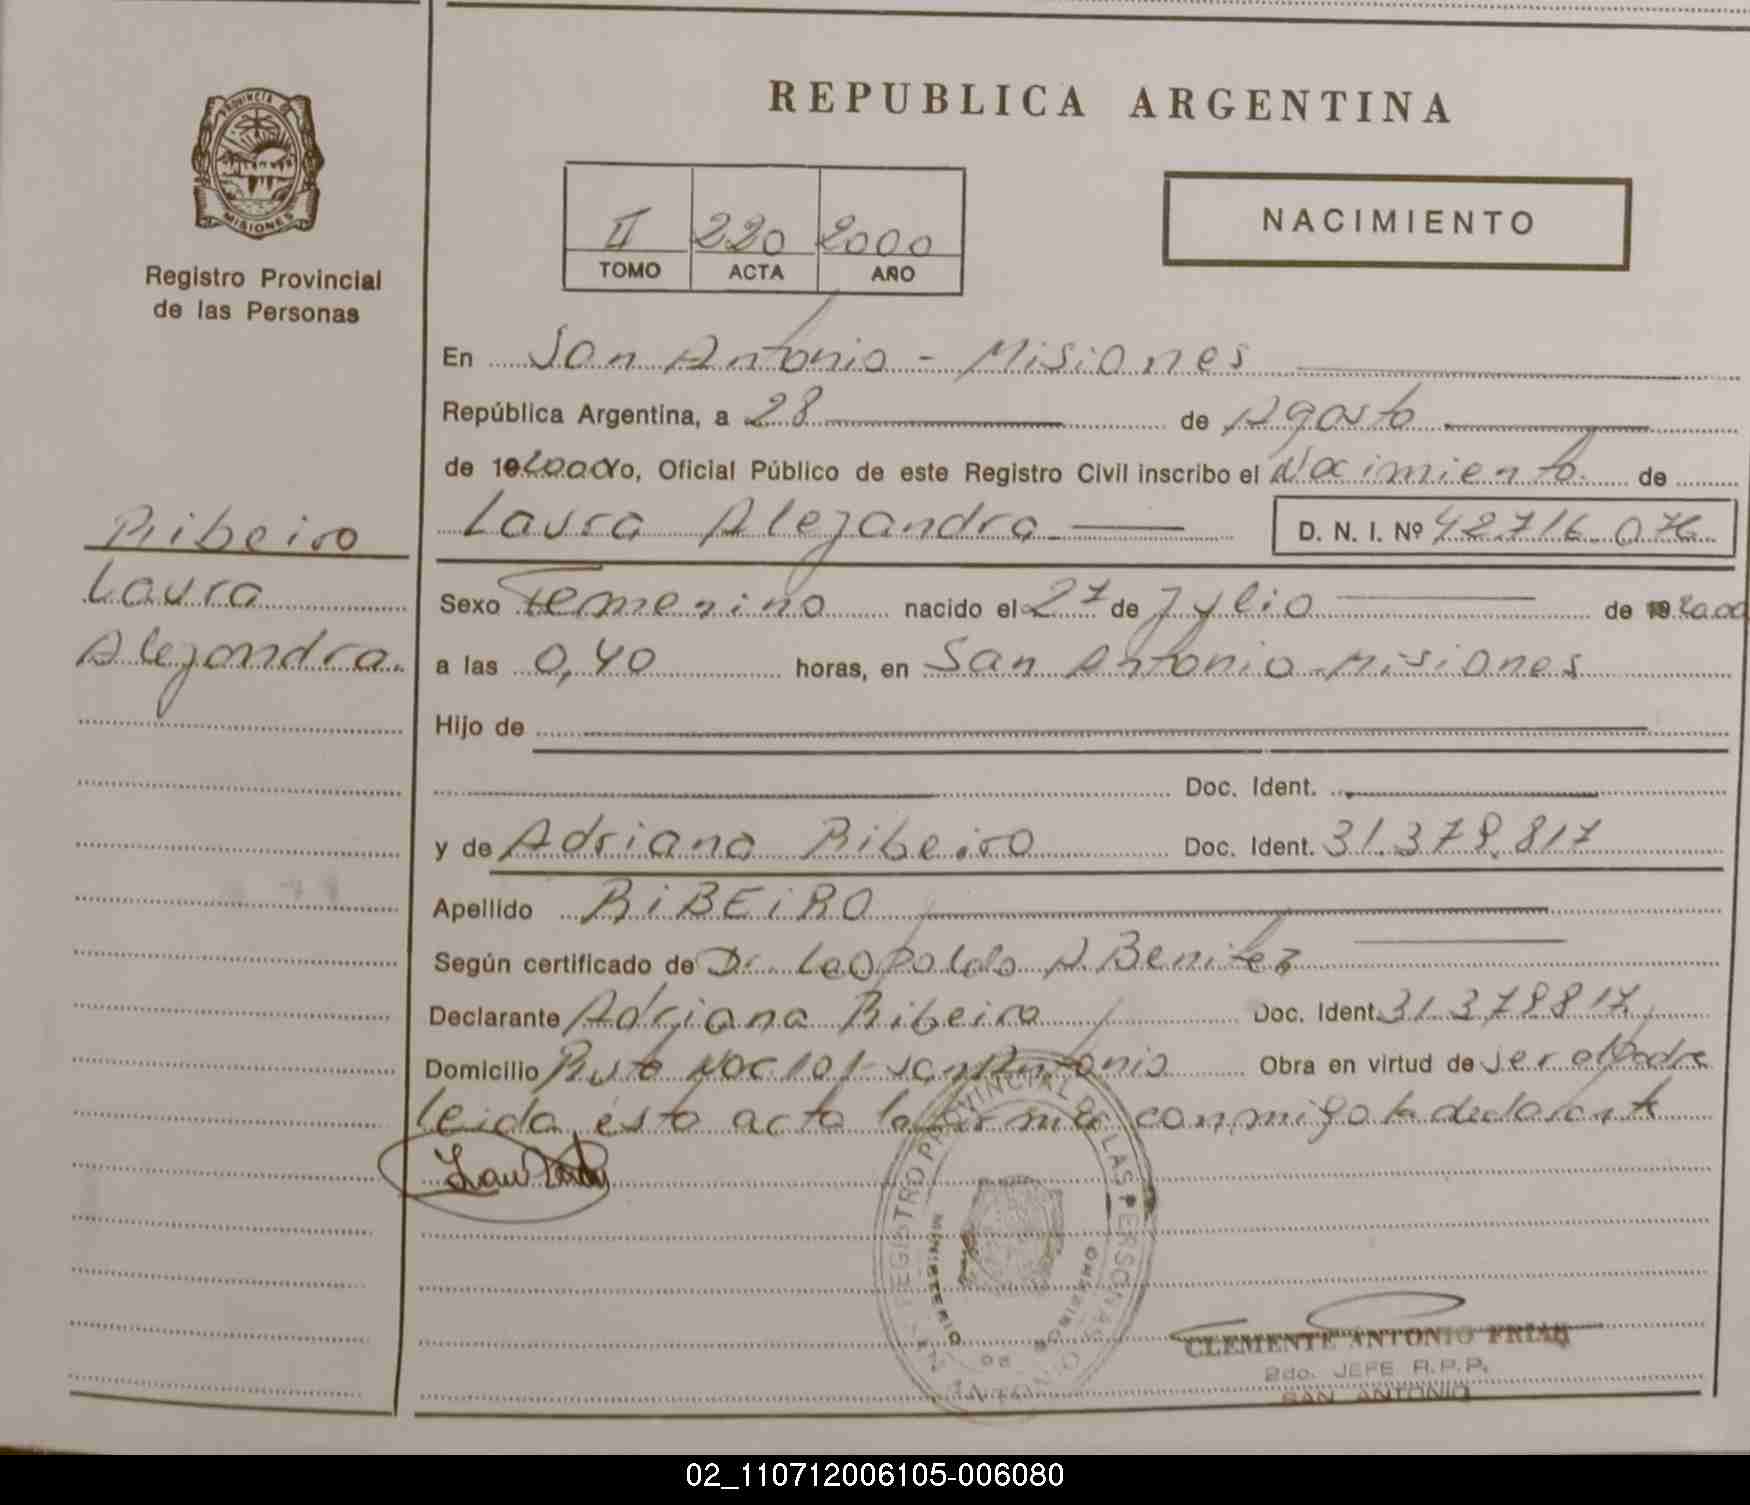 PROVINCIA DE
MISIONES
Registro Provincial
de las Personas
REPUBLICA ARGENTINA
II 220 2000
TOMO ACTA AÑO
NACIMIENTO
En San Antonio - Misiones
República Argentina, a 28 de Agosto
de 19 2000 Yo, Oficial Público de este Registro Civil inscribo el Nacimiento de
Laura Alejandra D. N. I. Nº 42.716.076
Ribeiro
Laura
Alejandra.
Sexo Femenino nacido el 27 de Julio de 19 2000
a las 0,40 horas, en San Antonio - Misiones
Hijo de
Doc. Ident.
y de Adriana Ribeiro Doc. Ident. 31.378.817
Apellido RIBEIRO
Según certificado de Dr. Leopoldo A. Benitez
Declarante Adriana Ribeiro Doc. Ident. 31.378817
Domicilio San Antonio Obra en virtud de ser
leida esta acta la firma conmigo la declarante
REGISTRO PROVINCIAL DE LAS PERSONAS
MINISTERIO DE GOBIERNO
CLEMENTE ANTONIO FRIAS
2do. JEFE R.P.P.
SAN ANTONIO
02_110712006105-006080